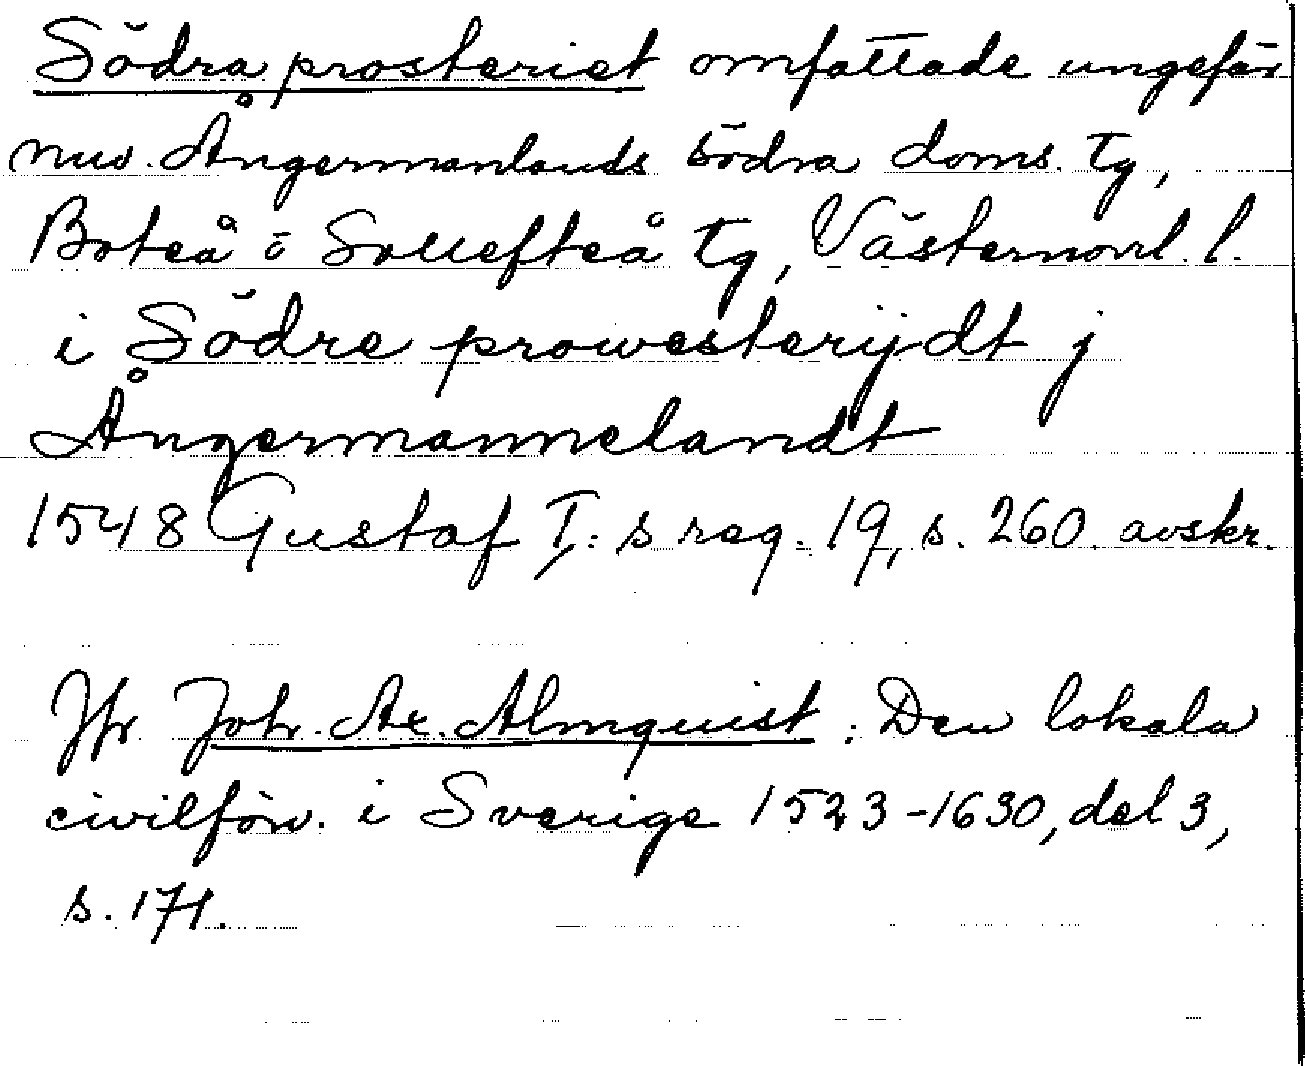 Södra prosteriet omfattade ungefär
nuv. Ångermanlands södra doms. tg,
Boteå o Sollefteå tg, Västernorrl. l.
i Södre prowesterijdt j
Ångermannelandt
1548 Gustaf I:s reg. 19, s. 260. avskr.
Jfr Joh. Ax. Almquist: Den lokala
civilförv. i Sverige 1523-1630, del 3,
s. 171.